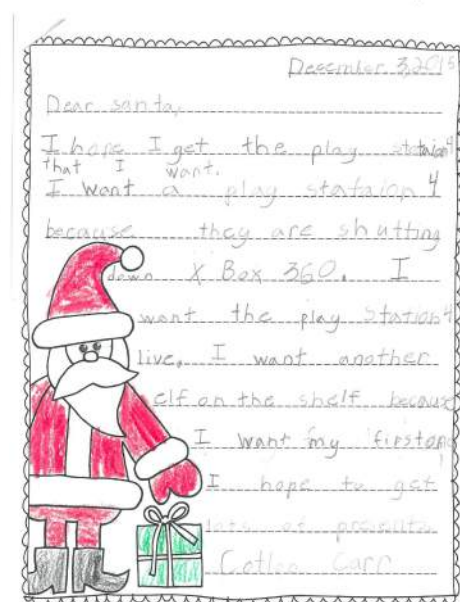 December 3, 2015
Dear santa,
I hope I get the play stataion 4
that I want.
I want a play stataion 4
because they are shutting
down X Box 360. I
want the play Station 4
live, I want another
elf on the shelf because
I want my first one
I hope to get
lots of presents
Carr